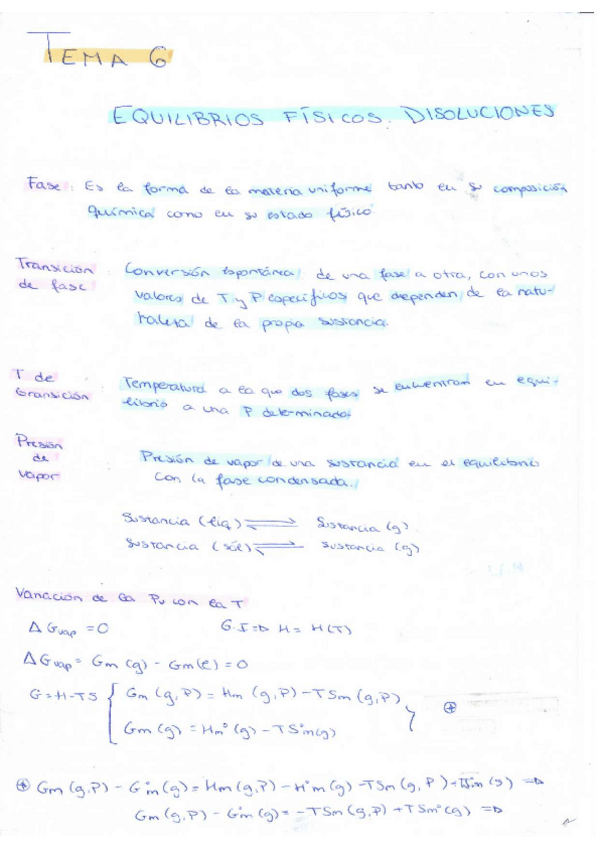 TEMA 6
EQUILIBRIOS FÍSICOS. DISOLUCIONES
Fase: Es la forma de la materia uniforme tanto en su composición
química como en su estado físico
Transición de fase: Conversión espontánea de una fase a otra, con unos
valores de T y P específicos que dependen de la natu-
raleza de la propia sustancia.
T de transición: Temperatura a la que dos fases se encuentran en equi-
librio a una P determinada.
Presión de vapor: Presión de vapor de una sustancia en el equilibrio
con la fase condensada.
Sustancia (líq) ⇌ Sustancia (g).
Sustancia (sól) ⇌ Sustancia (g)
Variación de la Pv con la T
ΔGvap = 0 G.I ⇒ H = H(T)
ΔGvap = Gm (g) - Gm(l) = 0
G = H-TS { Gm (g,P) = Hm (g,P) - TSm (g,P)
Gm (g) = Hm° (g) - TS°m(g) } ⊕
⊕ Gm (g,P) - G°m (g) = Hm (g,P) - H°m (g) - TSm (g,P) + TS°m (g) ⇒
Gm (g,P) - G°m (g) = -TSm (g,P) + TSm° (g) ⇒